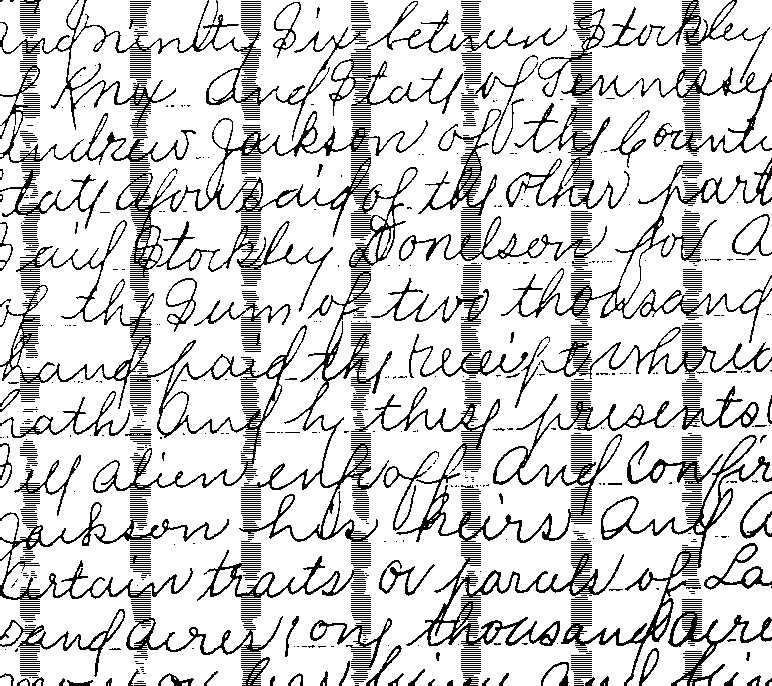 and ninety Six between Stockley
of Knox and State of Tennessey
Andrew Jackson of the Count
State aforesaid of the other part
Said Stockley Donelson for A
of the Sum of two thousand
hand paid the receipt where
hath and by these presents
Sell alien enfeoff and Confir
Jackson his heirs and A
Certain tracts or parcels of La
sand acres one thousand acre
more or less being and bein